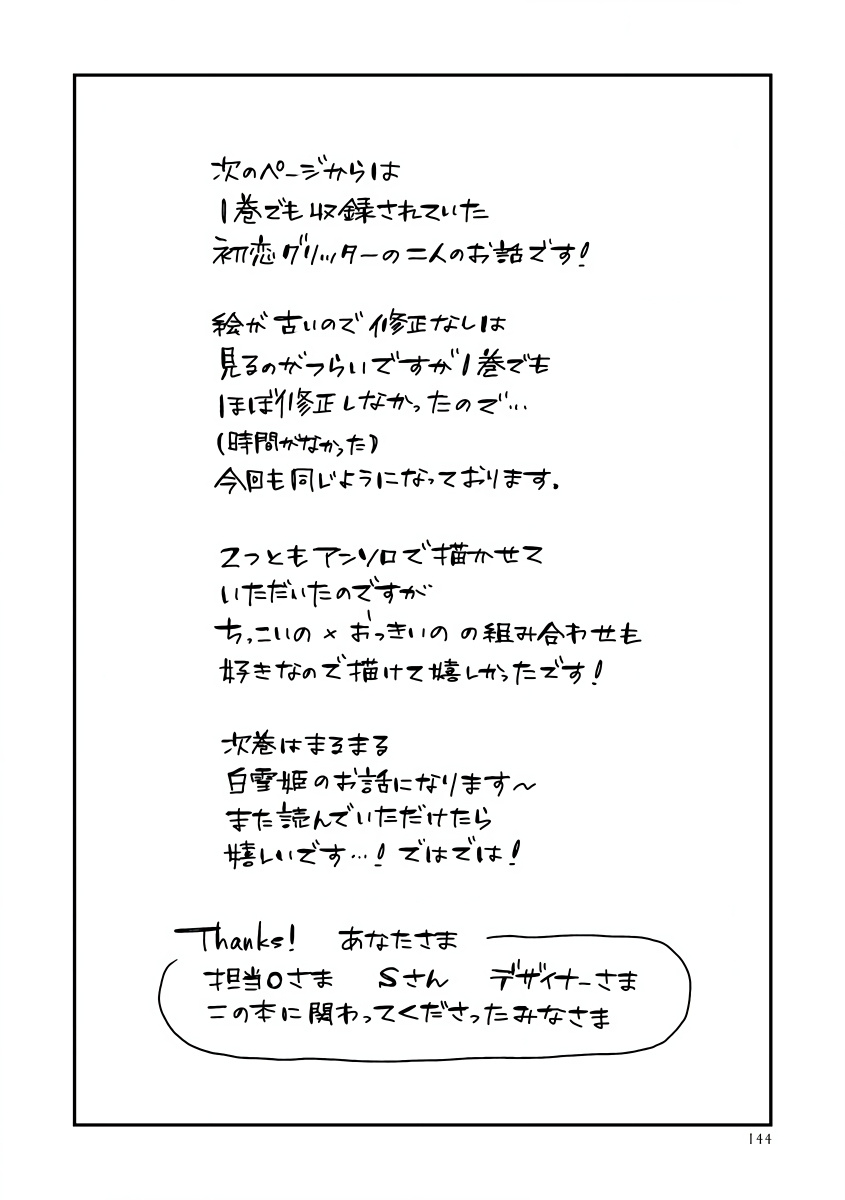 次のページからは
1巻でも収録されていた
初恋グリッターの二人のお話です!
絵が古いので修正なしは
見るのがつらいですが1巻でも
ほぼ修正しなかったので…
(時間がなかった)
今回も同じようになっております。
2つともアンソロで描かせて
いただいたのですが
ちっこいの×おっきいのの組み合わせも
好きなので描けて嬉しかったです!
次巻はまるまる
白雪姫のお話になります〜
また読んでいただけたら
嬉しいです…!ではでは!
Thanks! あなたさま
担当Oさま Sさん デザイナーさま
この本に関わってくださったみなさま
144